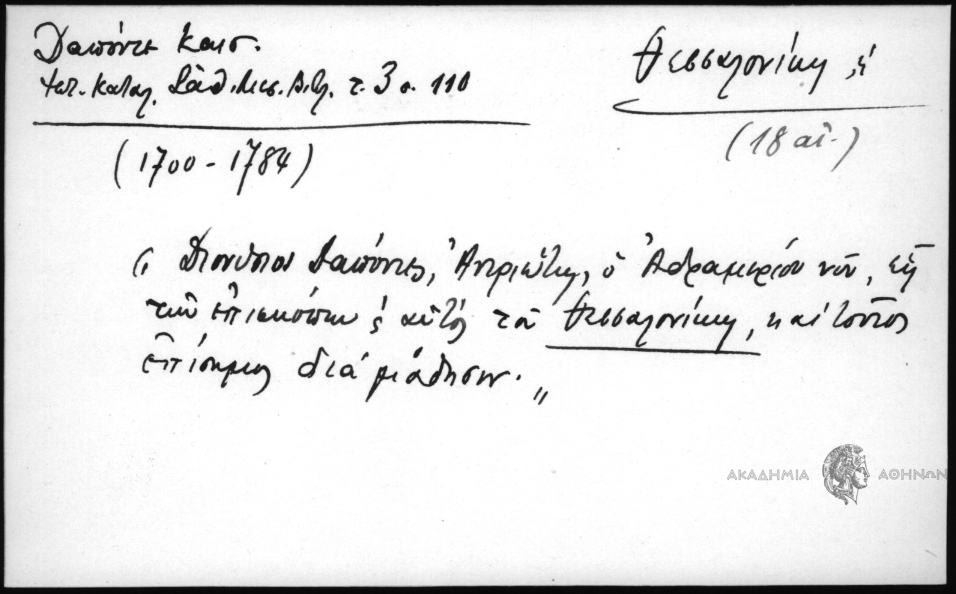 Δαπόντε Καισ.
Ἱστ. Καταλ. Σάθ. Μεσ. Βιβλ. τ. 3 σ. 110
Θεσσαλονίκη, ἡ
(1700 - 1784)
(18 αἰ.)
" Διονύσιος Δαπόντες, ὁ Ἀδραμερίου νῦν, εἷς
τῶν ἐπισκόπων καὶ αὐτὸς τοῦ Θεσσαλονίκης, καὶ τοῦτος
ἐπίσημος διὰ μάθησιν. "
ΑΚΑΔΗΜΙΑ ΑΘΗΝΩΝ